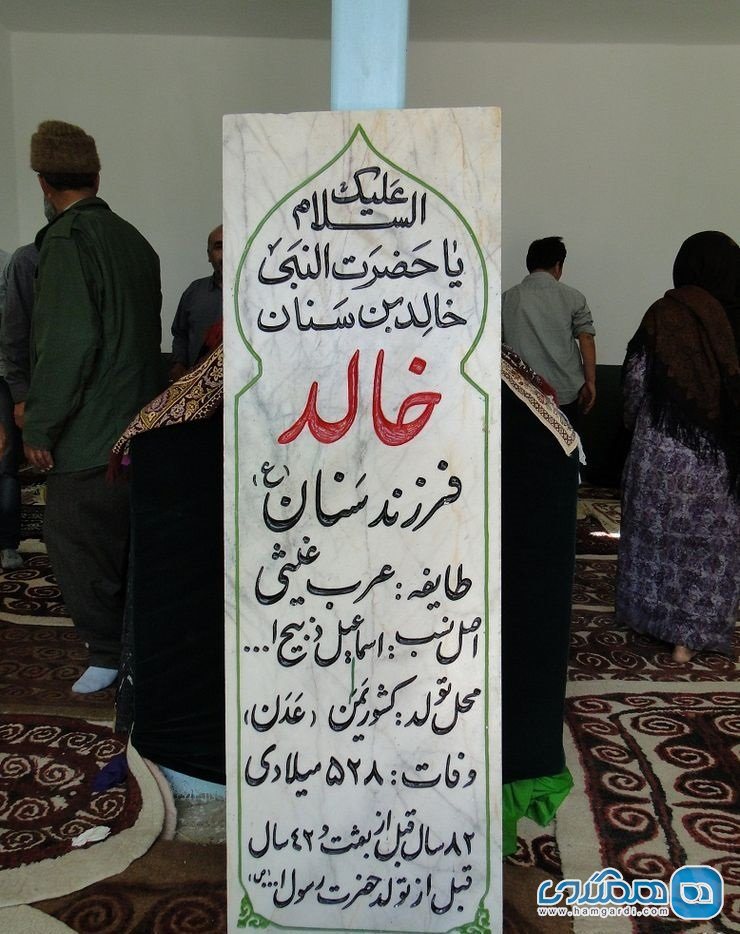 السلام علیک
یا حضرت النبی
خالد بن سنان
خالد
فرزند سنان (ع)
طایفه: عرب غیثی
اصل نسب: اسماعیل ذبیح ا...
محل تولد: کشور یمن (عدن)
وفات: ۵۲۸ میلادی
۸۲ سال قبل از بعثت و ۴۲ سال
قبل از تولد حضرت رسول ا... (ص)
همگردی
www.hamgardi.com